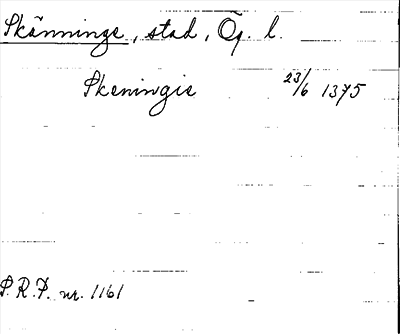 Skänninge, stad, Ög. l.
Skeningie 23/6 1375
S.R.P. nr. 1161